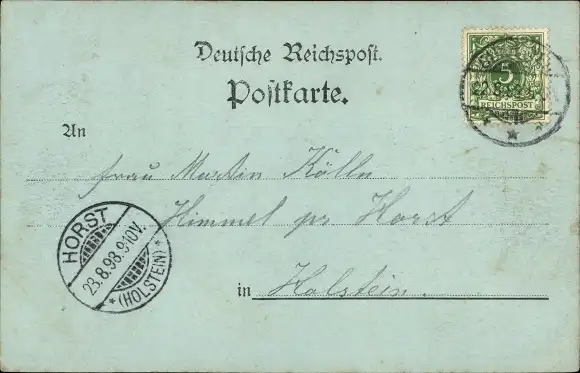 Deutsche Reichspost.
Postkarte.
5
REICHSPOST
22.8.
An
Frau Martin Kölln
Himmel pr Horst
in Holstein.
HORST
23.8.98.9-10V.
* (HOLSTEIN) *